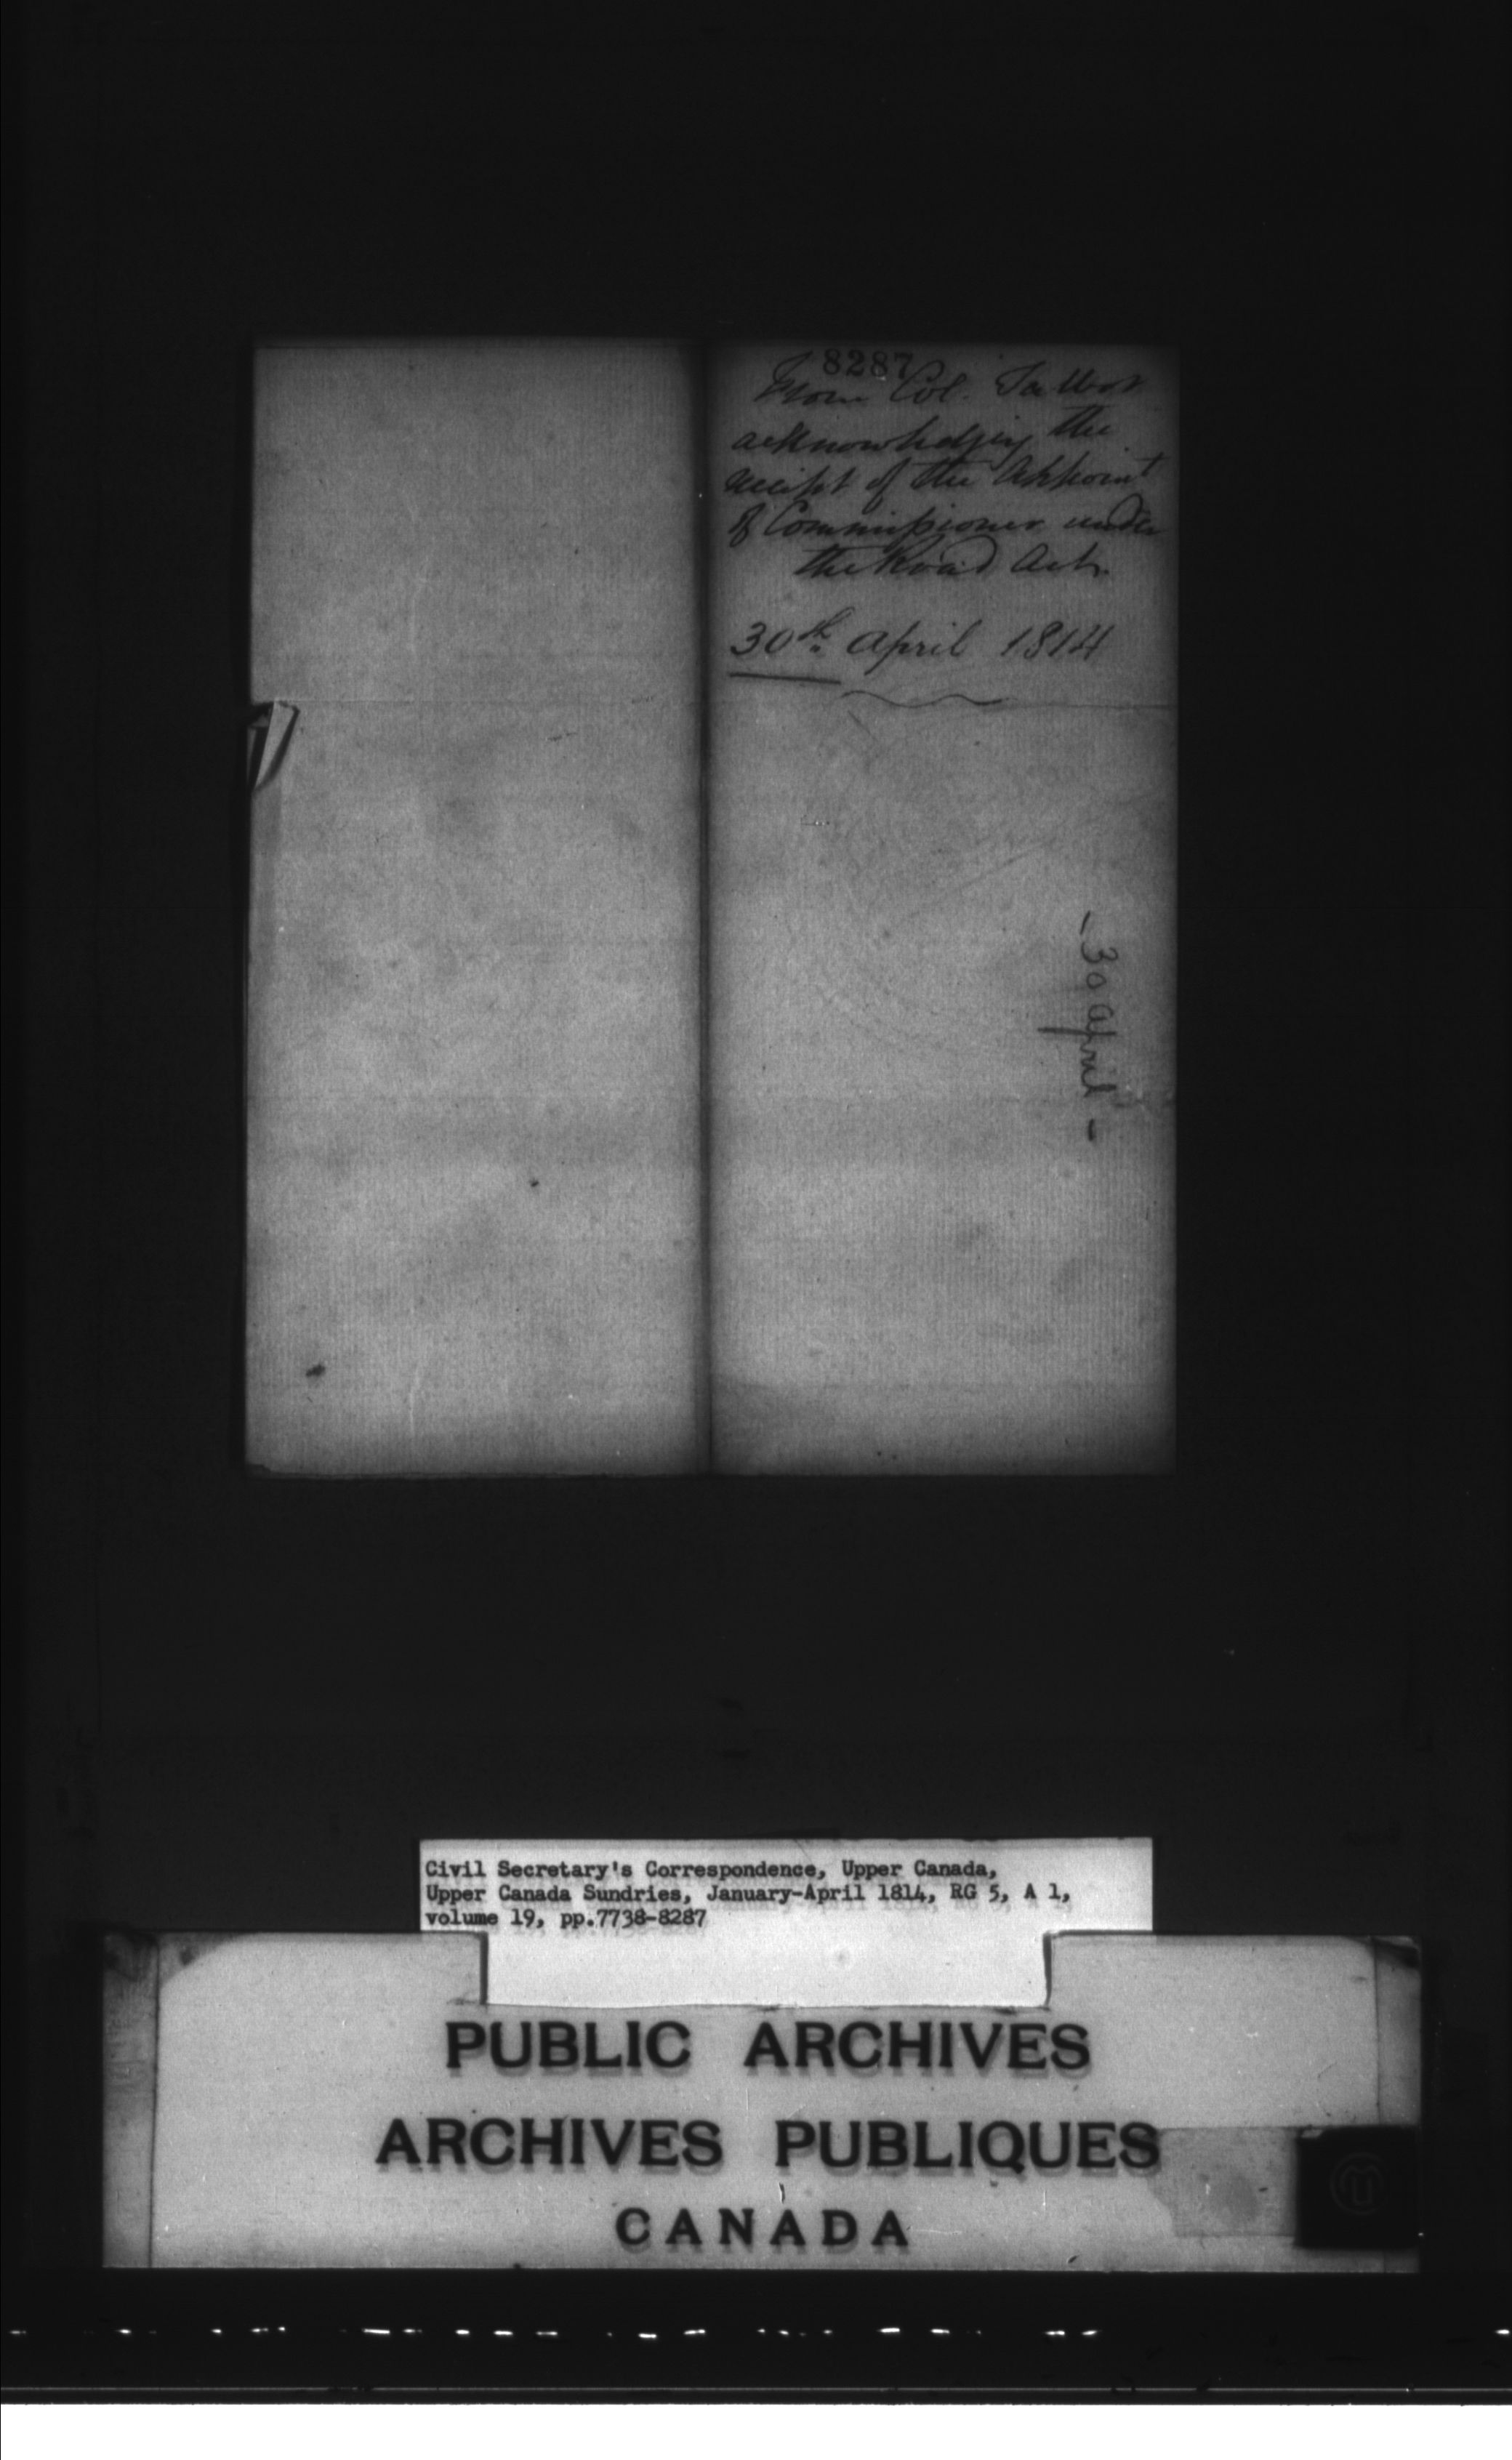 8287
From Col. Talbot
acknowledging the
receipt of the Appoint
of Commissioner under
the Road Act.
30th April 1814
- 30 april -
Civil Secretary's Correspondence, Upper Canada,
Upper Canada Sundries, January-April 1814, RG 5, A 1,
volume 19, pp.7738-8287
PUBLIC ARCHIVES
ARCHIVES PUBLIQUES
CANADA